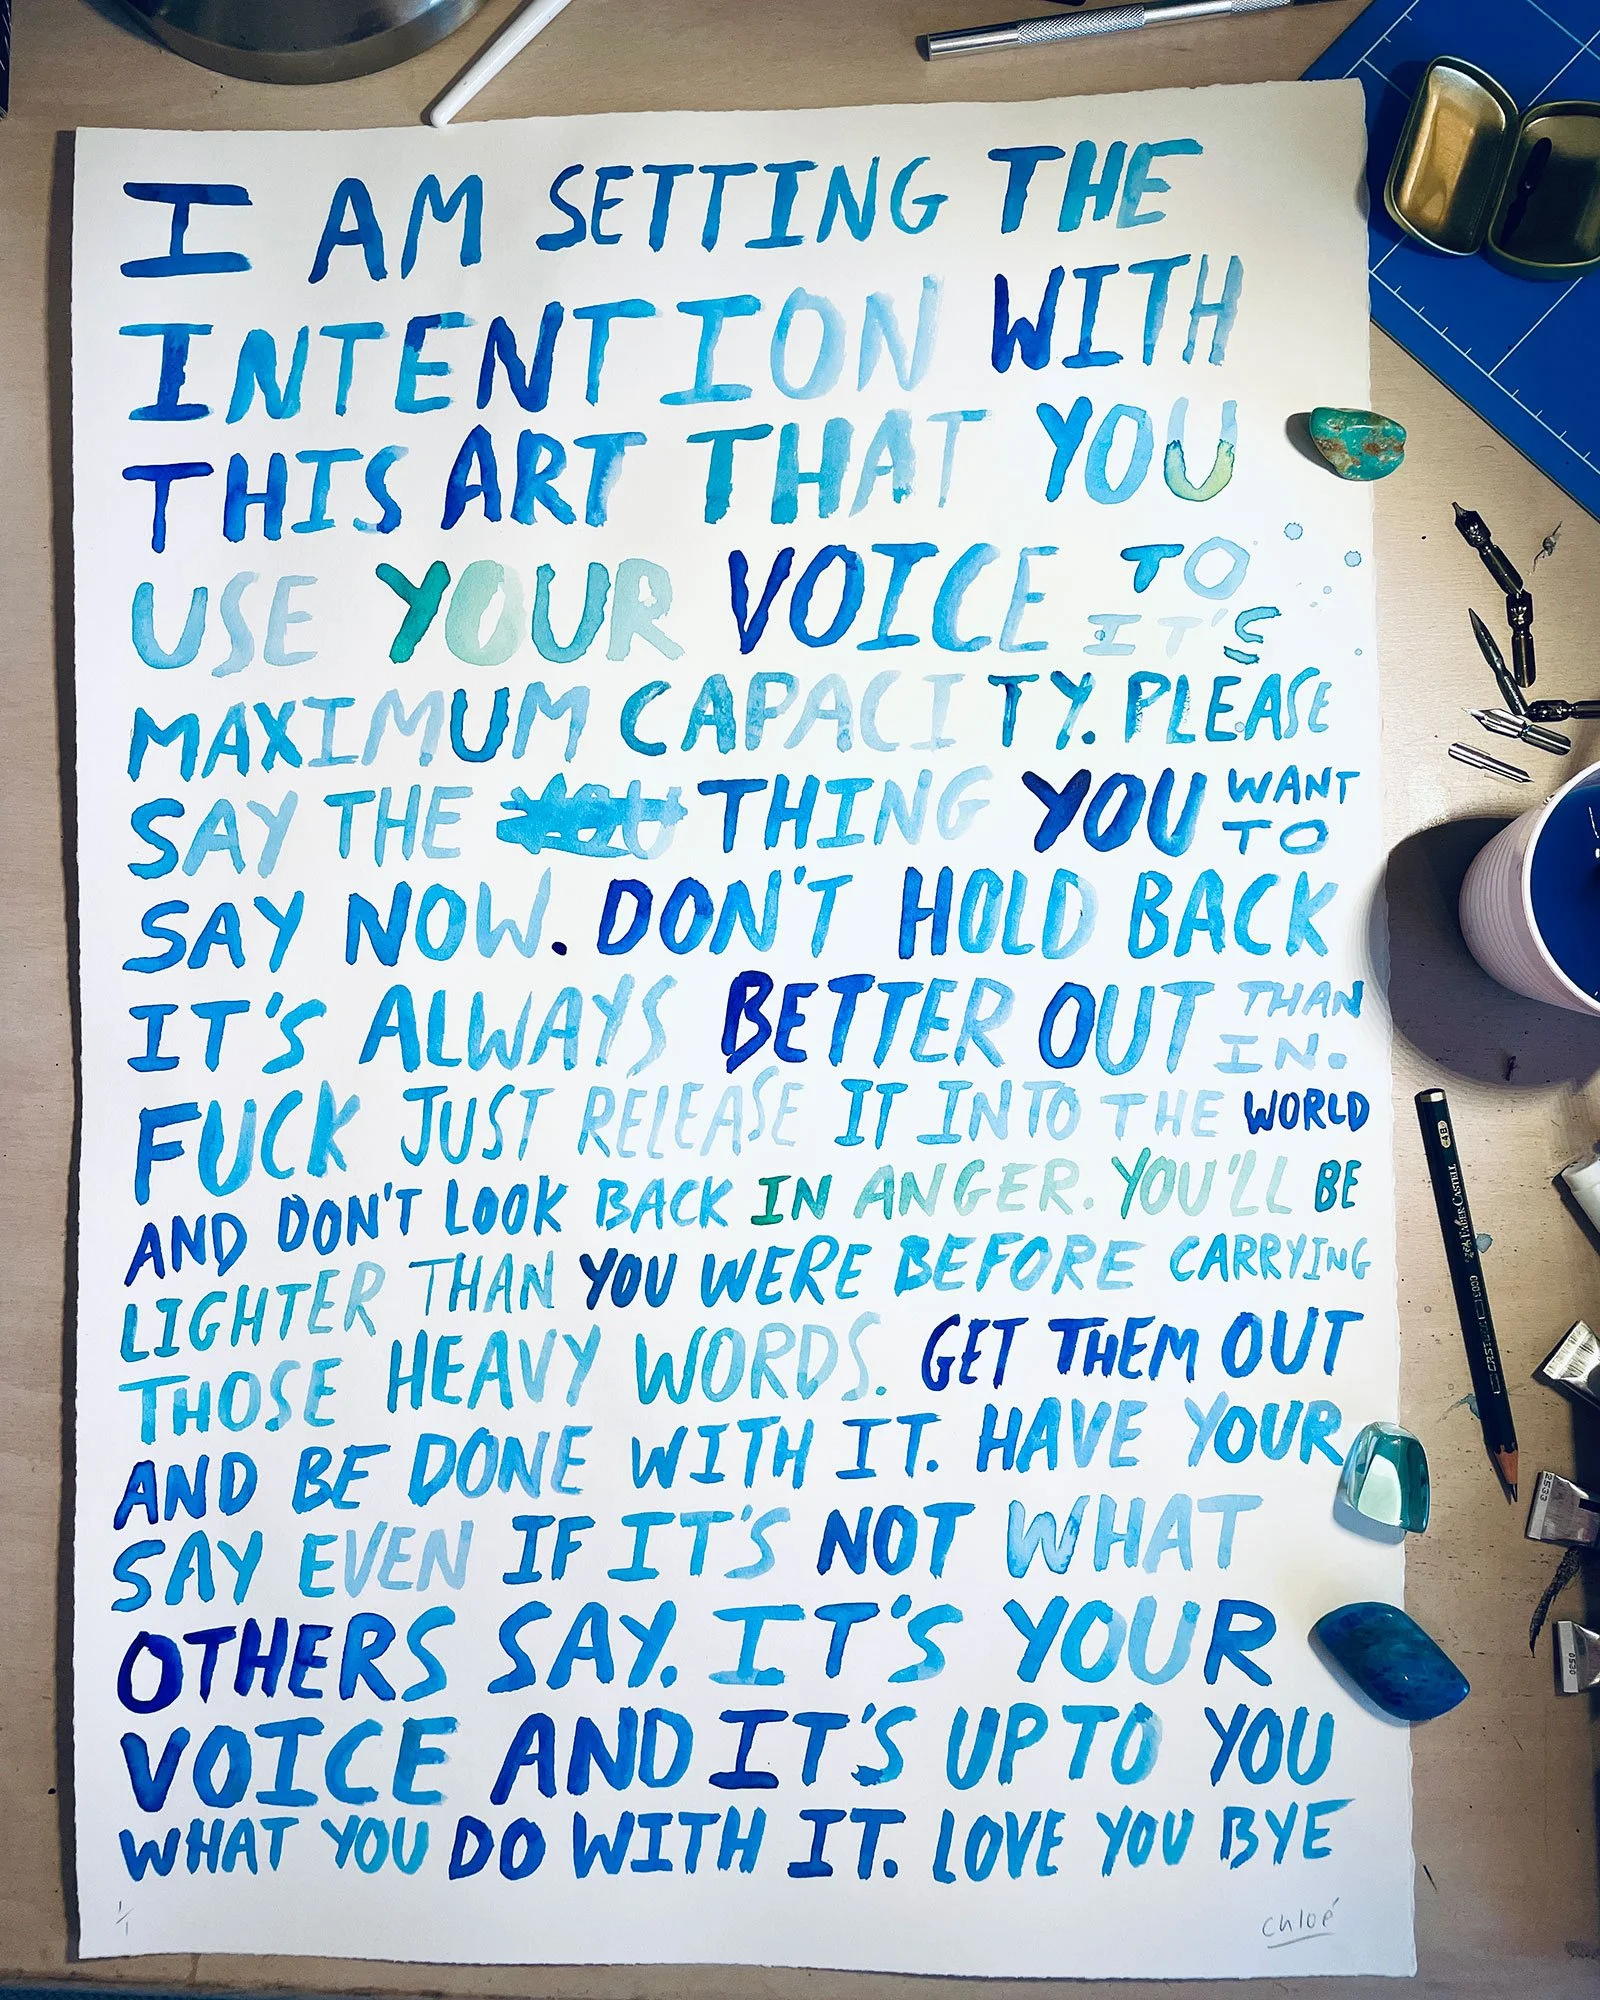 I AM SETTING THE
INTENTION WITH
THIS ART THAT YOU
USE YOUR VOICE TO
IT'S
MAXIMUM CAPACITY. PLEASE
SAY THE YOU THING YOU WANT
TO
SAY NOW. DON'T HOLD BACK
IT'S ALWAYS BETTER OUT THAN
IN.
FUCK JUST RELEASE IT INTO THE WORLD
AND DON'T LOOK BACK IN ANGER. YOU'LL BE
LIGHTER THAN YOU WERE BEFORE CARRYING
THOSE HEAVY WORDS. GET THEM OUT
AND BE DONE WITH IT. HAVE YOUR
SAY EVEN IF IT'S NOT WHAT
OTHERS SAY. IT'S YOUR
VOICE AND IT'S UP TO YOU
WHAT YOU DO WITH IT. LOVE YOU BYE
1/1
chloé
FABER-CASTELL
4B
2533
0530